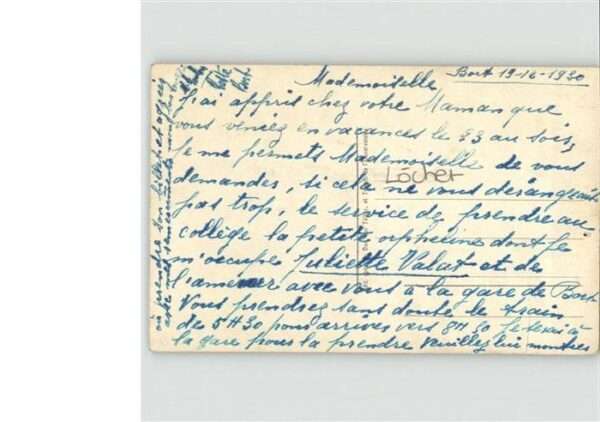 Bort 19-12-1930
Mademoiselle
J'ai appris chez votre Maman que
vous veniez en vacances le 23 au soir,
Je me permets Mademoiselle de vous
Locher
demandes, si cela ne vous dérangeait
pas trop, le service de prendre au
collège la petite orpheline dont je
m'occupe Juliette Valat et de
l'amener avec vous à la gare de Bort
Vous prendrez sans doute le train
de 5H30 pour arrives vers 8H30 Je serai à
la gare pour la prendre Veuillez lui montres
où prendre son billet et